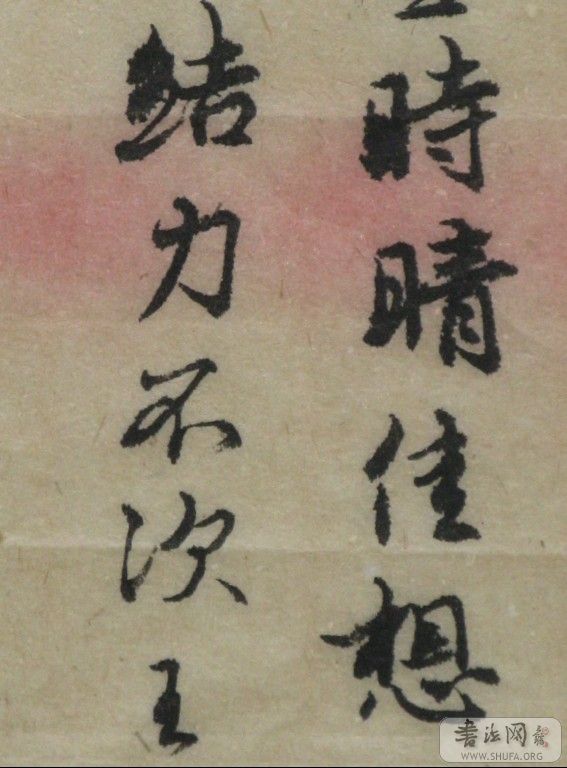 時晴佳想
結力不次王
書法网
WWW.SHUFA.ORG